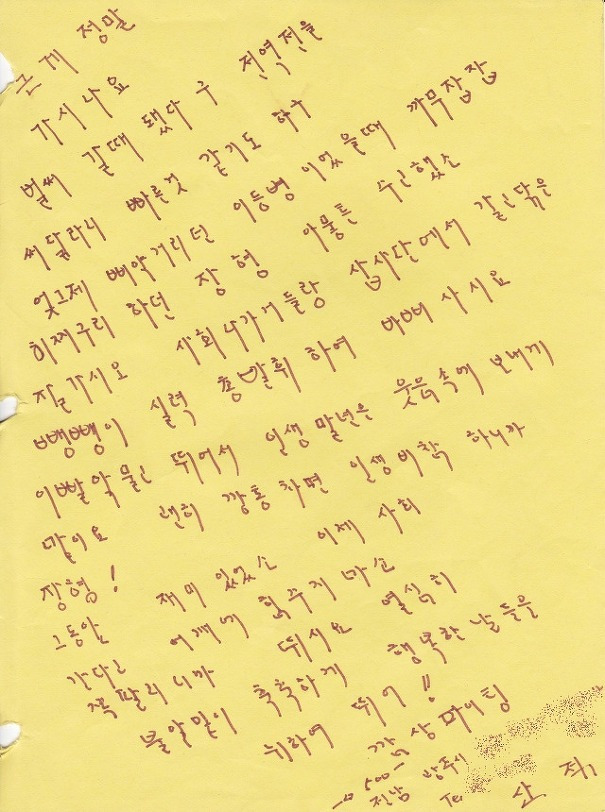 그게 정말
가시나요
벌써 갈때 됐다구 전역전을
써달라니 빠른것 같기도 하구
엊그제 삐약거리던 이등병 이었을때 까무잡잡
히찌구리 하던 장형 아뭏튼 수고했소
잘가시오 사회나가거들랑 삽사단에서 갈고닦은
뺑뺑이 실력 총발휘 하여 바삐 사시요
이빨악물고 뛰어서 인생말년은 웃음속에 보내게
말이요 괜히 깡통차면 인생비참 하니까
장형!
그동안 재미 있었소 이제 사회
간다고 어깨에 힘주지 마소
쪽팔리니까 뛰시요 열심히
불알밑이 축축하게 행복한 날들을
위하여 뛰어!!
파이팅
전남 광주시
Te